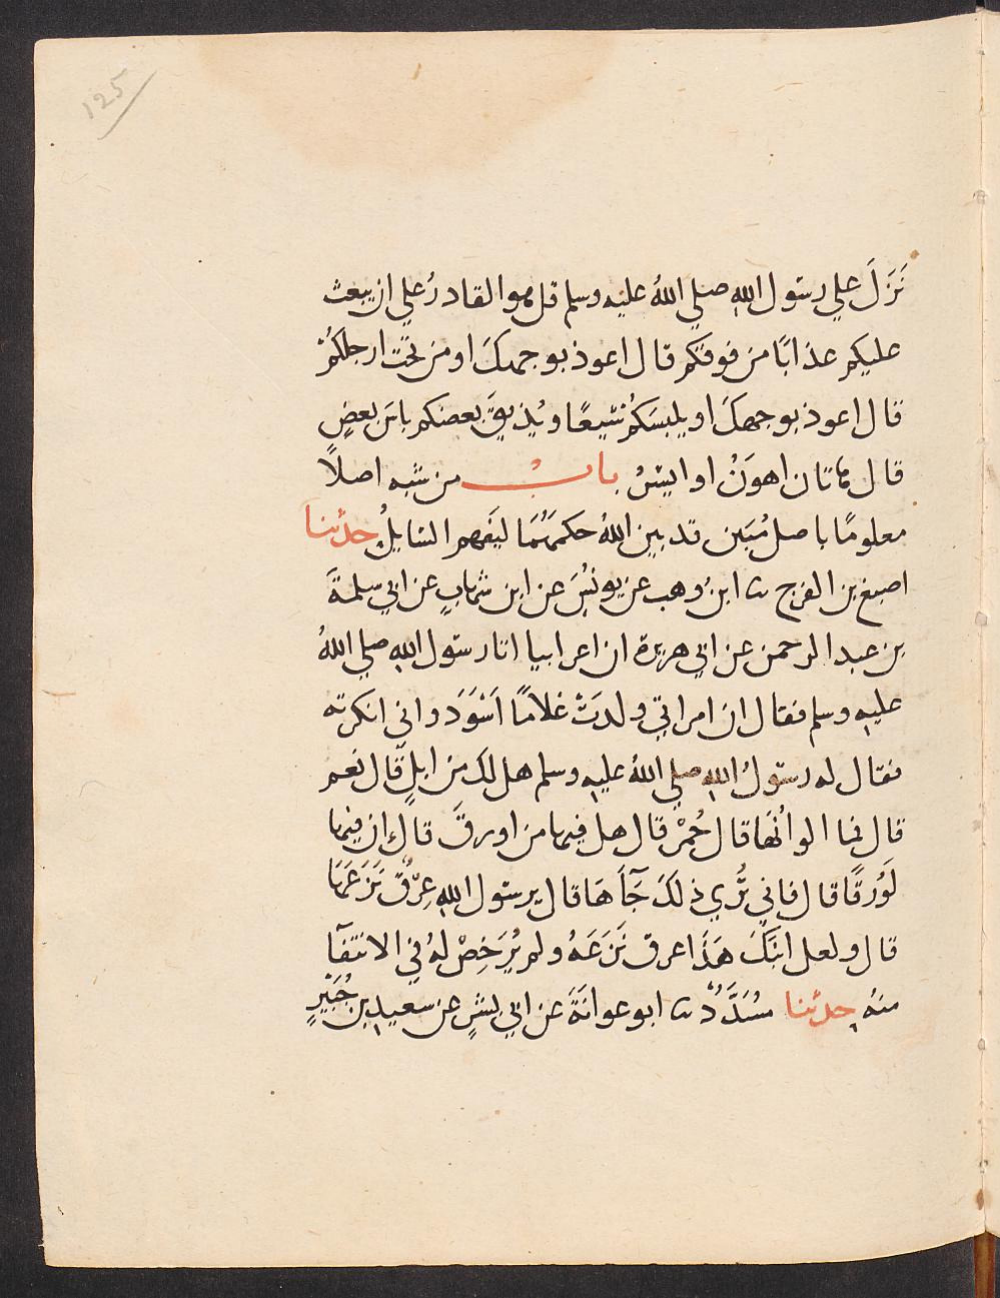 125
نَزَلَ علي رسول الله صلي اللهُ عليه وسلم قل هو القادرُ علي ان يبعث
عليكم عذابًا من فوقكم قال اعوذ بوجهكَ او من تحت ارجلكُمْ
قال اعوذ بوجهكَ او يلبسَكُمْ شيعًا ويُذيقَ بعضكم باسَ بعضٍ
قال هاتان اهوَنُ او ايسَرُ بابْ من شبه اصلًا
معلومًا باصل مُبَين قد بين اللهُ حكمَهُمَا ليَفهم السَايلُ حدثنا
اصبغ بن الفرج ثنا ابن وهب عن يونُسَ عن ابن شهابٍ عن ابي سلمةَ
بن عبد الرحمن عن ابي هريرة ان اعرابيا اتا رسول الله صلي اللهُ
عليهِ وسلم فقال ان امراتي ولدَتْ غلامًا اَسْوَدَ واني انكرته
فقال له رسولُ اللهِ صلي اللهُ عليهِ وسلم هل لك من ابلٍ قال نعم
قال فما الوانُهَا قال حُمْرٌ قال هل فيها من اورقَ قال ان فيها
لَوُرقًا قال فاني تُري ذلكَ جَآءَهَا قال يرسول الله عِرْقٌ نَزَعَهَا
قال ولعل ابنَكَ هَذَا عرق نَزَعَهُ ولم يُرَخِصْ لهُ في الانتفآ
منهُ حدثنا مُسَدَّدٌ ثنا ابو عوانَةَ عن ابي بشرٍ عن سعيدِ بن جُبَيْرٍ